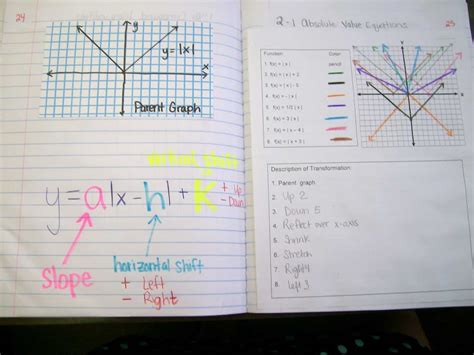 24
y
y = |x|
x
Parent Graph
vertical shift
y = a|x - h| + k + Up
- Down
Slope
horizontal shift
+ Left
- Right
2-1 Absolute Value Equations 25
Function Color
1. f(x) = | x | pencil
2. f(x) = | x | + 2
3. f(x) = | x | - 5
4. f(x) = - | x |
5. f(x) = 1/2 | x |
6. f(x) = 3 | x |
7. f(x) = | x - 4 |
Description of Transformation:
1. Parent graph
2. Up 2
3. Down 5
4. Reflect over x-axis
5. Shrink
6. Stretch
7. Right 4
8. Left 3